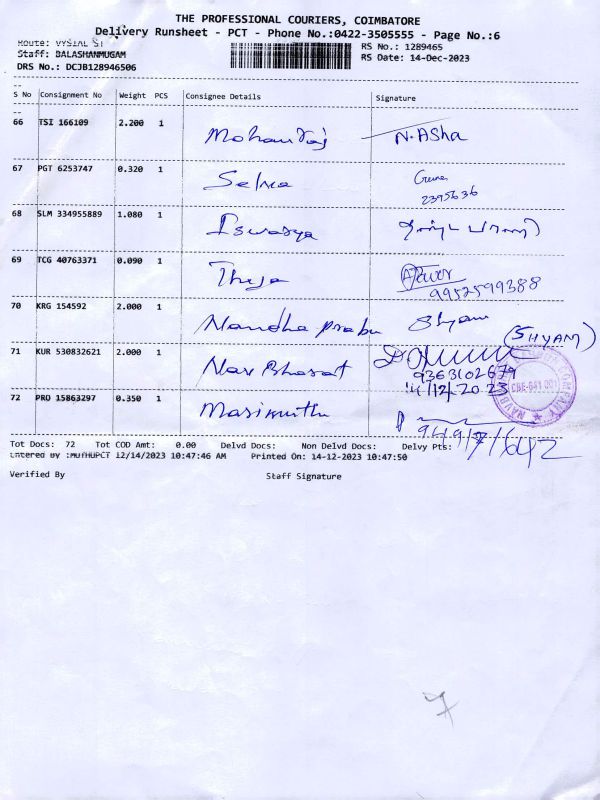 THE PROFESSIONAL COURIERS, COIMBATORE
Delivery Runsheet - PCT - Phone No.:0422-3505555 - Page No.:6
Route: VYSIAL ST
RS No.: 1289465
Staff: BALASHANMUGAM
RS Date: 14-Dec-2023
DRS No.: DCJB128946506
S No Consignment No Weight PCS Consignee Details Signature
66 TSI 166109 2.200 1 Mohanraj N.Asha
67 PGT 6253747 0.320 1 Selva
2395636
68 SLM 334955889 1.080 1 Iswarya
69 TCG 40763371 0.090 1 Thuja
9952599388
70 KRG 154592 2.000 1 Nandha prabu Shyam
(SHYAM)
71 KUR 530832621 2.000 1 Nav Bharat
9363102679
14/12/2023
CBE-641 001
72 PRO 15863297 0.350 1 Marimuthu
Tot Docs: 72 Tot COD Amt: 0.00 Delvd Docs: Non Delvd Docs: Delvy Pts:
Entered By :MUTHUPCT 12/14/2023 10:47:46 AM Printed On: 14-12-2023 10:47:50
Verified By Staff Signature
7